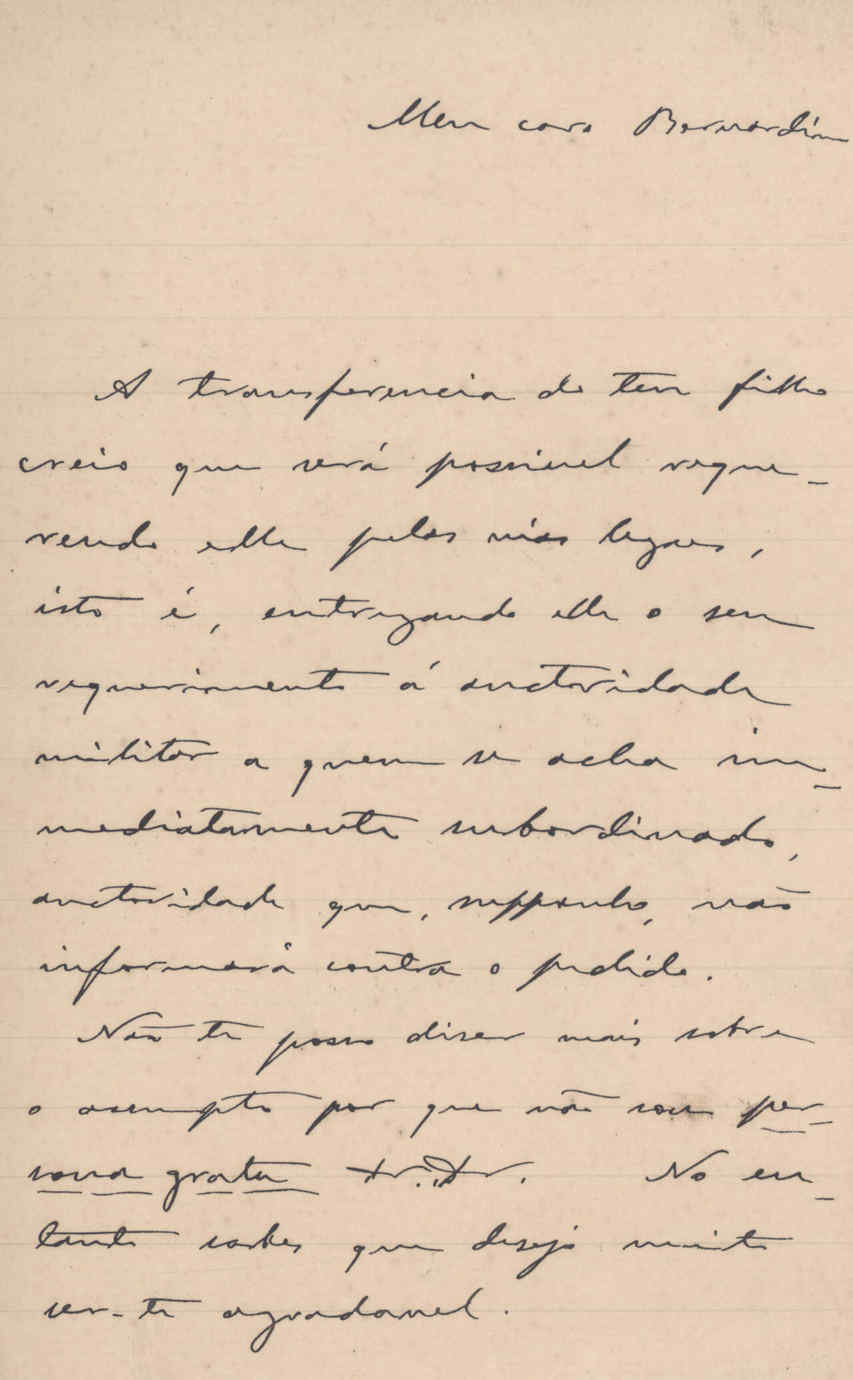 Meu caro Bernardino
A transferencia de teu filho
creio que será possivel reque-
rendo elle pelas vias legaes,
isto é, entregando elle o seu
requerimento á auctoridade
militar a quem se acha im-
mediatamente subordinado,
auctoridade que, supponho, não
informará contra o pedido.
Não te posso diser mais sobre
o assumpto por que não sou per-
sona grata No en-
tanto sabes que desejo muito
ser-te agradavel.